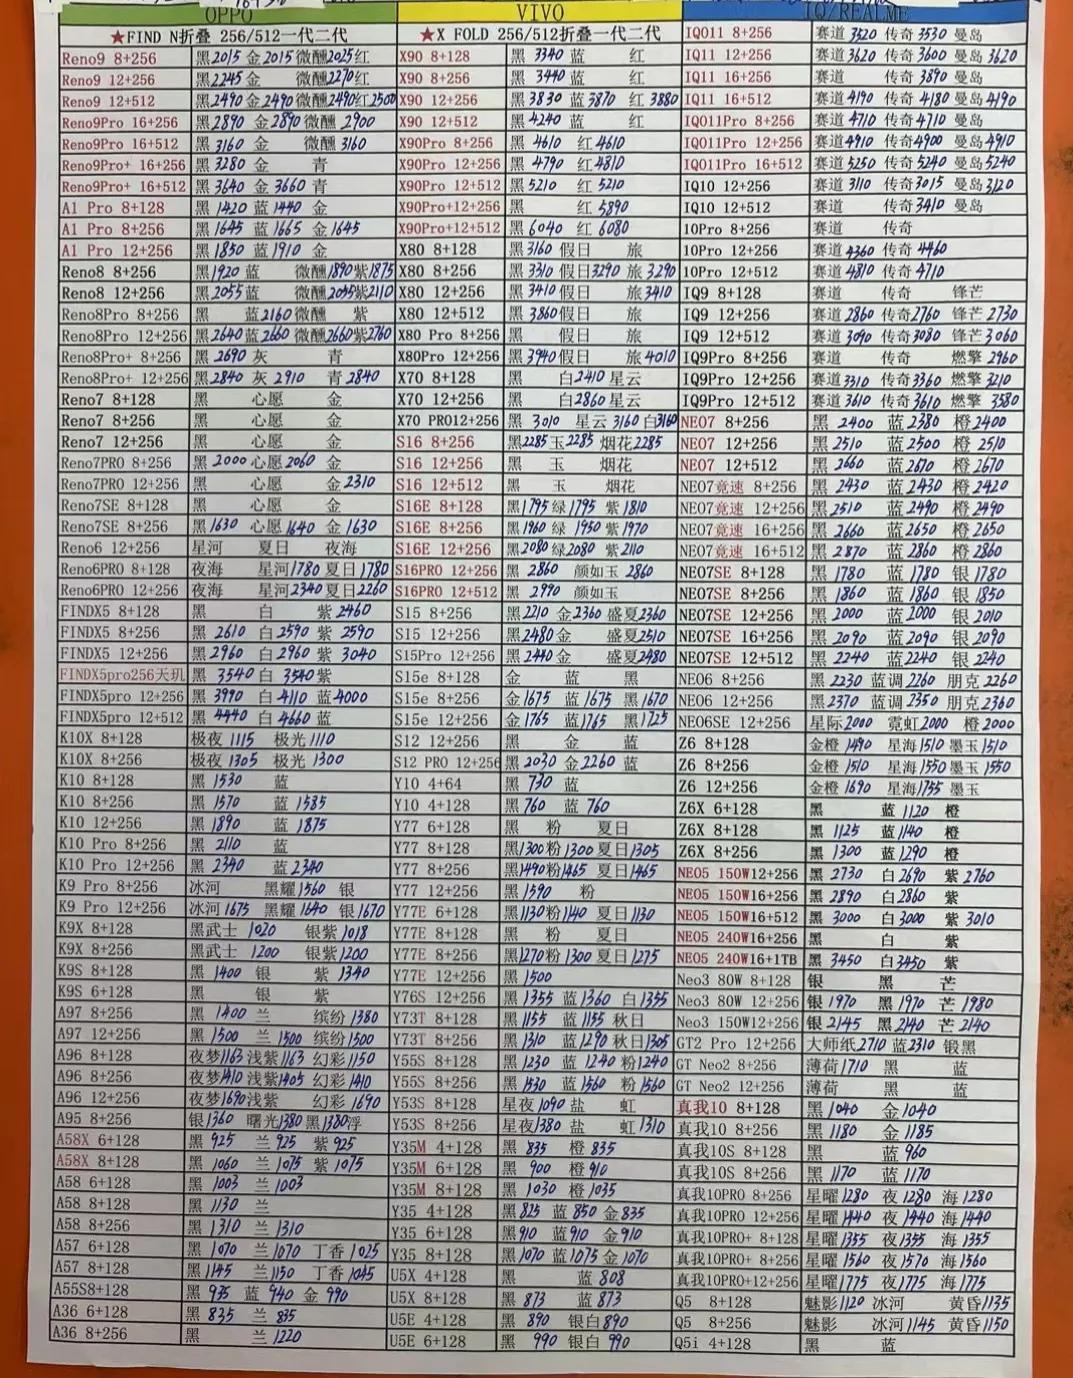 OPPO
★FIND N折叠 256/512一代二代
Reno9 8+256 黑2015 金2015 微醺2025红
Reno9 12+256 黑2245 金 微醺2270红
Reno9 12+512 黑2490 金2490 微醺2490红2500
Reno9Pro 16+256 黑2890 金2890 微醺2900
Reno9Pro 16+512 黑3160 金 微醺3160
Reno9Pro+ 16+256 黑3280 金 青
Reno9Pro+ 16+512 黑3640 金3660 青
A1 Pro 8+128 黑1420 蓝1440 金
A1 Pro 8+256 黑1645 蓝1665 金1645
A1 Pro 12+256 黑1850 蓝1910 金
Reno8 8+256 黑1920 蓝 微醺1890紫1875
Reno8 12+256 黑2055 蓝 微醺2045紫2110
Reno8Pro 8+256 黑 蓝2160 微醺 紫
Reno8Pro 12+256 黑2640 蓝2660 微醺2660紫2760
Reno8Pro+ 8+256 黑2690 灰 青
Reno8Pro+ 12+256 黑2840 灰2910 青2840
Reno7 8+128 黑 心愿 金
Reno7 8+256 黑 心愿 金
Reno7 12+256 黑 心愿 金
Reno7PRO 8+256 黑2000 心愿2060 金
Reno7PRO 12+256 黑 心愿 金2310
Reno7SE 8+128 黑 心愿 金
Reno7SE 8+256 黑1630 心愿1640 金1630
Reno6 12+256 星河 夏日 夜海
Reno6PRO 8+128 夜海 星河1780 夏日1780
Reno6PRO 12+256 夜海 星河2340 夏日2260
FINDX5 8+128 黑 白 紫2460
FINDX5 8+256 黑2610 白2590 紫2590
FINDX5 12+256 黑2960 白2960 紫3040
FINDX5pro256天玑 黑3540 白3540 紫
FINDX5pro 12+256 黑3990 白4110 蓝4000
FINDX5pro 12+512 黑4440 白4660 蓝
K10X 8+128 极夜1115 极光1110
K10X 8+256 极夜1305 极光1300
K10 8+128 黑1530 蓝
K10 8+256 黑1570 蓝1585
K10 12+256 黑1890 蓝1875
K10 Pro 8+256 黑2110 蓝
K10 Pro 12+256 黑2340 蓝2340
K9 Pro 8+256 冰河 黑耀1560 银
K9 Pro 12+256 冰河1675 黑耀1640 银1670
K9X 8+128 黑武士 1020 银紫1018
K9X 8+256 黑武士 1200 银紫1200
K9S 8+128 黑1400 银 紫1340
K9S 6+128 黑 银 紫
A97 8+256 黑1400 兰 缤纷1380
A97 12+256 黑1500 兰1500 缤纷1500
A96 8+128 夜梦1163浅紫1163 幻彩1150
A96 8+256 夜梦1410浅紫1405 幻彩1410
A96 12+256 夜梦1690浅紫 幻彩1690
A95 8+256 银1360 曙光1380黑1380浮
A58X 6+128 黑925 兰925 紫925
A58X 8+128 黑1060 兰1075 紫1075
A58 6+128 黑1003 兰1003
A58 8+128 黑1130 兰
A58 8+256 黑1310 兰1310
A57 6+128 黑1070 兰1070 丁香1025
A57 8+128 黑1145 兰1150 丁香1045
A55S8+128 黑935 蓝940 金990
A36 6+128 黑835 兰835
A36 8+256 黑 兰1220
VIVO
★X FOLD 256/512折叠一代二代
X90 8+128 黑3340 蓝 红
X90 8+256 黑3440 蓝 红
X90 12+256 黑3830 蓝3870 红3880
X90 12+512 黑4240 蓝 红
X90Pro 8+256 黑4610 红4610
X90Pro 12+256 黑4790 红4810
X90Pro 12+512 黑5210 红5210
X90Pro+12+256 黑 红5890
X90Pro+12+512 黑6040 红6080
X80 8+128 黑3160 假日 旅
X80 8+256 黑3310 假日3290 旅3290
X80 12+256 黑3410 假日 旅3410
X80 12+512 黑3860 假日 旅
X80 Pro 8+256 黑 假日 旅
X80Pro 12+256 黑3940 假日 旅4010
X70 8+128 黑 白2410 星云
X70 12+256 黑 白2860 星云
X70 PRO12+256 黑3010 星云3160 白3160
S16 8+256 黑2285玉2285 烟花2285
S16 12+256 黑 玉 烟花
S16 12+512 黑 玉 烟花
S16E 8+128 黑1795 绿1795 紫1810
S16E 8+256 黑1960 绿1950 紫1970
S16E 12+256 黑2080 绿2080 紫2110
S16PRO 12+256 黑2860 颜如玉2860
S16PRO 12+512 黑2990 颜如玉
S15 8+256 黑2210 金2360 盛夏2360
S15 12+256 黑2480 金 盛夏2510
S15Pro 12+256 黑2440 金 盛夏2480
S15e 8+128 金 蓝 黑
S15e 8+256 金1675 蓝1675 黑1670
S15e 12+256 金1765 蓝1765 黑1725
S12 12+256 黑 金 蓝
S12 PRO 12+256 黑2030 金2260 蓝
Y10 4+64 黑730 蓝
Y10 4+128 黑760 蓝760
Y77 6+128 黑 粉 夏日
Y77 8+128 黑1300粉1300 夏日1305
Y77 8+256 黑1490粉1465 夏日1465
Y77 12+256 黑1590 粉
Y77E 6+128 黑1130粉1140 夏日1130
Y77E 8+128 黑 粉 夏日
Y77E 8+256 黑1270粉1300 夏日1275
Y77E 12+256 黑1500
Y76S 12+256 黑1355 蓝1360 白1355
Y73T 8+128 黑1155 蓝1155 秋日
Y73T 8+256 黑1310 蓝1290 秋日1305
Y55S 8+128 黑1230 蓝1240 粉1240
Y55S 8+256 黑1530 蓝1560 粉1560
Y53S 8+128 星夜1090 盐 虹
Y53S 8+256 星夜1380 盐 虹1310
Y35M 4+128 黑835 橙835
Y35M 6+128 黑900 橙910
Y35M 8+128 黑1030 橙1035
Y35 4+128 黑825 蓝850 金835
Y35 6+128 黑910 蓝910 金910
Y35 8+128 黑1070 蓝1075 金1070
U5X 4+128 黑 蓝808
U5X 8+128 黑873 蓝873
U5E 4+128 黑890 银白890
U5E 6+128 黑990 银白990
IQ/REALME
IQ011 8+256 赛道3520 传奇3530 曼岛
IQ11 12+256 赛道3620 传奇3600 曼岛3620
IQ11 16+256 赛道 传奇3890 曼岛
IQ11 16+512 赛道4190 传奇4180 曼岛4190
IQ011Pro 8+256 赛道4710 传奇4710 曼岛
IQ011Pro 12+256 赛道4910 传奇4900 曼岛4910
IQ011Pro 16+512 赛道5250 传奇5240 曼岛5240
IQ10 12+256 赛道3110 传奇3015 曼岛3120
IQ10 12+512 赛道 传奇3410 曼岛
10Pro 8+256 赛道 传奇
10Pro 12+256 赛道4360 传奇4460
10Pro 12+512 赛道4810 传奇4710
IQ9 8+128 赛道 传奇 锋芒
IQ9 12+256 赛道2860 传奇2760 锋芒2730
IQ9 12+512 赛道3090 传奇3080 锋芒3060
IQ9Pro 8+256 赛道 传奇 燃擎2960
IQ9Pro 12+256 赛道3310 传奇3360 燃擎3210
IQ9Pro 12+512 赛道3610 传奇3610 燃擎3580
NEO7 8+256 黑2400 蓝2380 橙2400
NEO7 12+256 黑2510 蓝2500 橙2510
NEO7 12+512 黑2660 蓝2670 橙2670
NEO7竞速 8+256 黑2430 蓝2430 橙2420
NEO7竞速 12+256 黑2510 蓝2490 橙2490
NEO7竞速 16+256 黑2660 蓝2650 橙2650
NEO7竞速 16+512 黑2870 蓝2860 橙2860
NEO7SE 8+128 黑1780 蓝1780 银1780
NEO7SE 8+256 黑1860 蓝1860 银1850
NEO7SE 12+256 黑2000 蓝2000 银2010
NEO7SE 16+256 黑2090 蓝2090 银2090
NEO7SE 12+512 黑2240 蓝2240 银2240
NEO6 8+256 黑2230 蓝调2260 朋克2260
NEO6 12+256 黑2370 蓝调2350 朋克2360
NEO6SE 12+256 星际2000 霓虹2000 橙2000
Z6 8+128 金橙1490 星海1510 墨玉1510
Z6 8+256 金橙1510 星海1550 墨玉1550
Z6 12+256 金橙1690 星海1755 墨玉
Z6X 6+128 黑 蓝1120 橙
Z6X 8+128 黑1125 蓝1140 橙
Z6X 8+256 黑1300 蓝1290 橙
NEO5 150W12+256 黑2730 白2690 紫2760
NEO5 150W16+256 黑2890 白2860 紫
NEO5 150W16+512 黑3000 白3000 紫3010
NEO5 240W16+256 黑 白 紫
NEO5 240W16+1TB 黑3450 白3450 紫
Neo3 80W 8+128 银 黑 芒
Neo3 80W 12+256 银1970 黑1970 芒1980
Neo3 150W12+256 银2145 黑2140 芒2140
GT2 Pro 12+256 大师纸2710 蓝2310 锻黑
GT Neo2 8+256 薄荷1710 黑 蓝
GT Neo2 12+256 薄荷 黑 蓝
真我10 8+128 黑1040 金1040
真我10 8+256 黑1180 金1185
真我10S 8+128 黑 蓝960
真我10S 8+256 黑1170 蓝1170
真我10PRO 8+256 星曜1280 夜1280 海1280
真我10PRO 12+256 星曜1440 夜1440 海1440
真我10PRO+ 8+128 星曜1355 夜1355 海1355
真我10PRO+ 8+256 星曜1560 夜1570 海1560
真我10PRO+12+256 星曜1775 夜1775 海1775
Q5 8+128 魅影1120 冰河 黄昏1135
Q5 8+256 魅影 冰河1145 黄昏1150
Q5i 4+128 黑 蓝